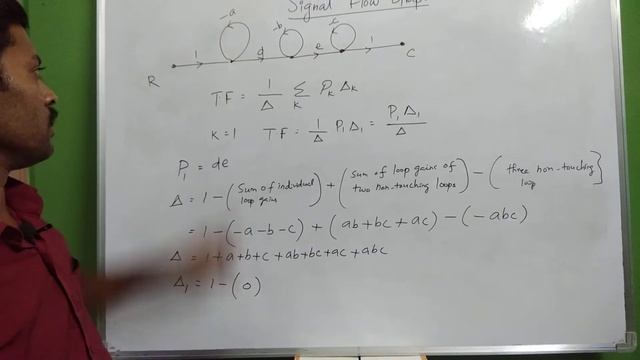 Signal Flow Graph
-a -b -c
R 1 d e 1 C
TF = 1/Δ Σ_K P_K Δ_K
K=1 TF = 1/Δ P₁Δ₁ = P₁Δ₁/Δ
P₁ = de
Δ = 1 - (Sum of individual loop gains) + (Sum of loop gains of two non-touching loops) - (three non-touching loop)
= 1 - (-a-b-c) + (ab+bc+ac) - (-abc)
Δ = 1+a+b+c+ab+bc+ac+abc
Δ₁ = 1-(0)